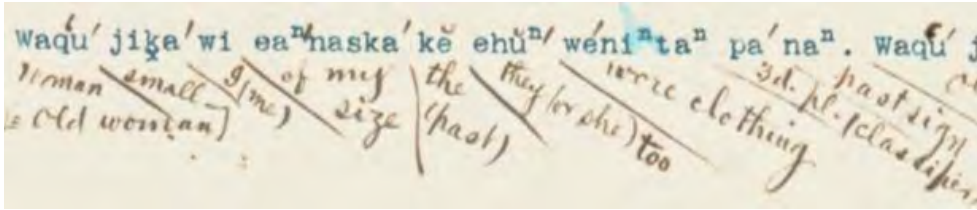 Waqu̔´ jiḳa´wi eaⁿ´naska´kĕ ehŭⁿ´ wéniⁿtaⁿ pa´naⁿ. Waqu̔´ j
woman small I (me) of my size the (past) they (or she) too were clothing 3d. pl. (classifier past sign
= Old woman]